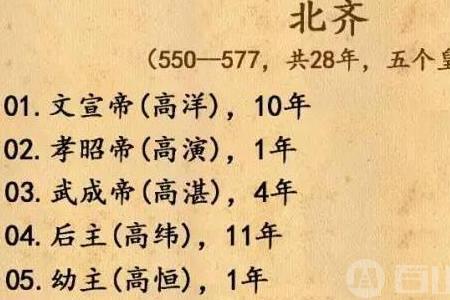 北齐
(550—577，共28年，五个皇
01.文宣帝(高洋)，10年
02.孝昭帝(高演)，1年
03.武成帝(高湛)，4年
04.后主(高纬)，11年
05.幼主(高恒)，1年